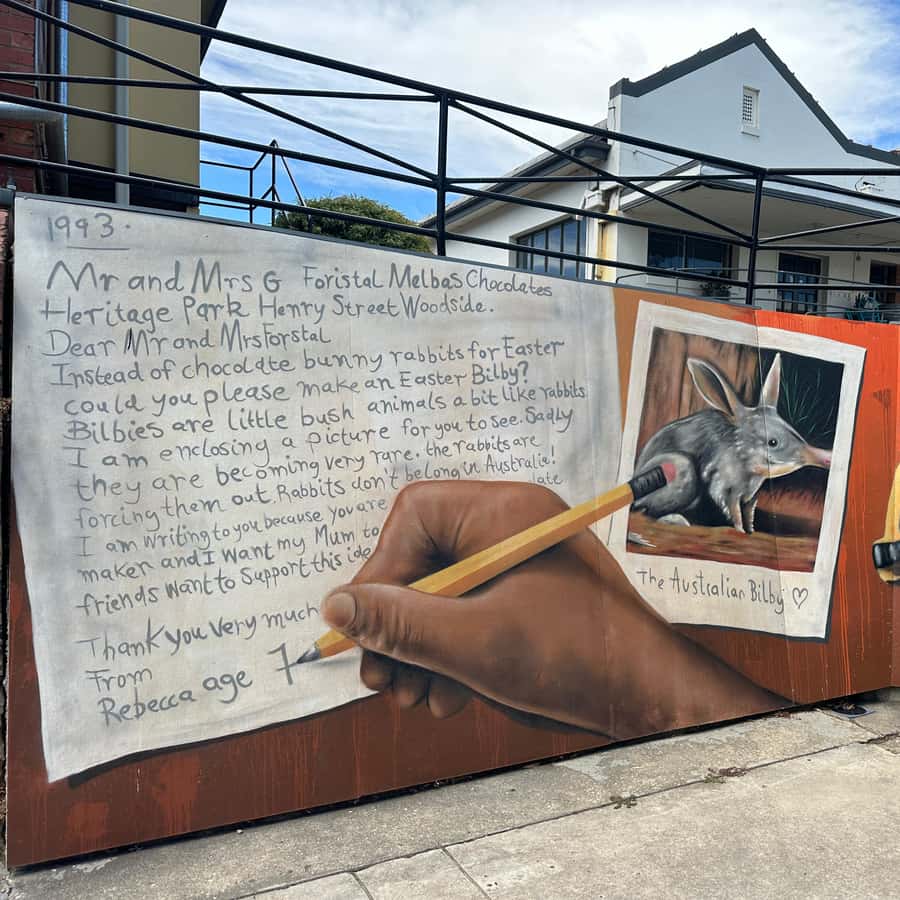 1993.
Mr and Mrs G Foristal Melbas Chocolates
Heritage Park Henry Street Woodside.
Dear Mr and Mrs Forstal
Instead of chocolate bunny rabbits for Easter
could you please make an Easter Bilby?
Bilbies are little bush animals a bit like rabbits
I am enclosing a picture for you to see. Sadly
they are becoming very rare. the rabbits are
forcing them out. Rabbits don't belong in Australia!
I am writing to you because you are
maker and I want my Mum to
friends want to support this
Thank you very much
From
Rebecca age 7
The Australian Bilby ♡